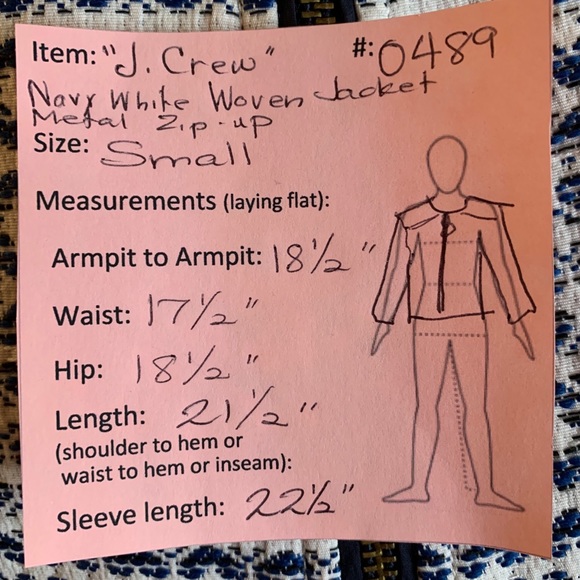 Item: "J. Crew" #: 0489
Navy White Woven Jacket
Metal Zip-up
Size: Small
Measurements (laying flat):
Armpit to Armpit: 18 1/2"
Waist: 17 1/2"
Hip: 18 1/2"
Length: 21 1/2"
(shoulder to hem or
waist to hem or inseam):
Sleeve length: 22 1/2"